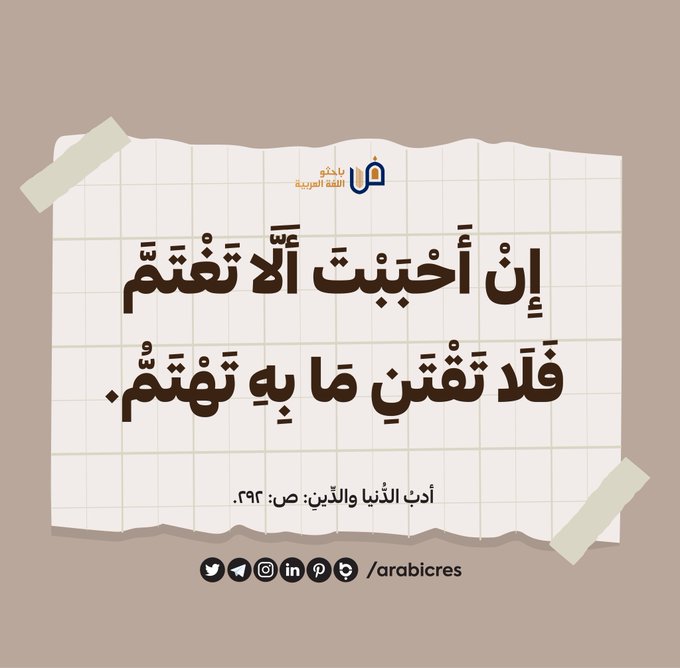 باحثو
اللغة العربية
إِنْ أَحْبَبْتَ أَلَّا تَغْتَمَّ
فَلَا تَقْتَنِ مَا بِهِ تَهْتَمُّ.
أدبُ الدُّنيا والدِّينِ: ص: ٢٩٢.
/arabicres